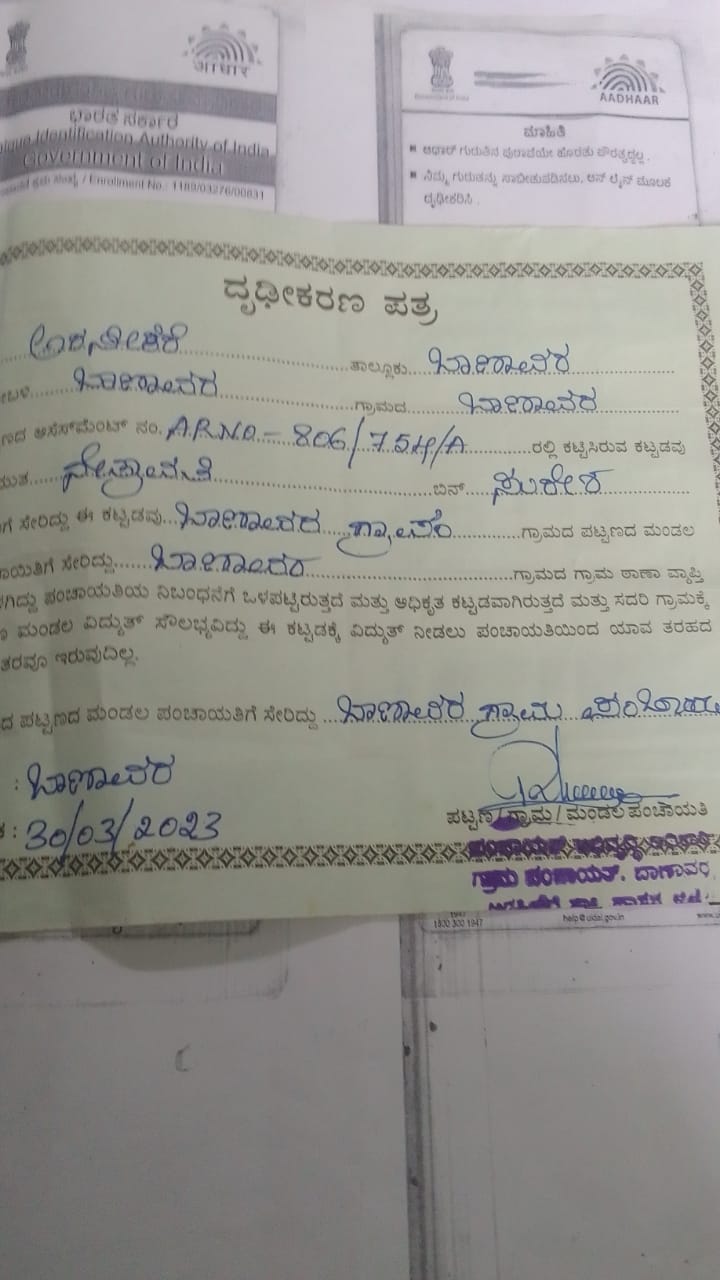 आधार
ಭಾರತ ಸರ್ಕಾರ
Identification Authority of India
Government of India
/ Enrollment No. : 1189/03276/00831
AADHAAR
ಮಾಹಿತಿ
■ ಆಧಾರ್ ಗುರುತಿನ ಪುರಾವೆಯೇ ಹೊರತು ಪೌರತ್ವದ್ದಲ್ಲ.
■ ನಿಮ್ಮ ಗುರುತನ್ನು ಸಾಬೀತುಪಡಿಸಲು, ಆನ್ ಲೈನ್ ಮೂಲಕ
ದೃಢೀಕರಿಸಿ.
ದೃಢೀಕರಣ ಪತ್ರ
ಅರಸೀಕೆರೆ ತಾಲ್ಲೂಕು ಬಾಣಾವರ
ಬಾಣಾವರ ಗ್ರಾಮದ ಬಾಣಾವರ
ಅಸೆಸ್‌ಮೆಂಟ್ ನಂ. A.R.NO - 806/754/A ರಲ್ಲಿ ಕಟ್ಟಿಸಿರುವ ಕಟ್ಟಡವು
ನೇತ್ರಾವತಿ ಬಿನ್ ಸುರೇಶ
ಗೆ ಸೇರಿದ್ದು ಈ ಕಟ್ಟಡವು ಬಾಣಾವರದ ಗ್ರಾಮ ಗ್ರಾಮದ ಪಟ್ಟಣದ ಮಂಡಲ
ಸೇರಿದ್ದು ಬಾಣಾವರ ಗ್ರಾಮದ ಗ್ರಾಮ ಠಾಣಾ ವ್ಯಾಪ್ತಿ
ಪಂಚಾಯತಿಯ ನಿಬಂಧನೆಗೆ ಒಳಪಟ್ಟಿರುತ್ತದೆ ಮತ್ತು ಅಧಿಕೃತ ಕಟ್ಟಡವಾಗಿರುತ್ತದೆ ಮತ್ತು ಸದರಿ ಗ್ರಾಮಕ್ಕೆ
ಮಂಡಲ ವಿದ್ಯುತ್ ಸೌಲಭ್ಯವಿದ್ದು ಈ ಕಟ್ಟಡಕ್ಕೆ ವಿದ್ಯುತ್ ನೀಡಲು ಪಂಚಾಯತಿಯಿಂದ ಯಾವ ತರಹದ
ಇರುವುದಿಲ್ಲ.
ದ ಪಟ್ಟಣದ ಮಂಡಲ ಪಂಚಾಯತಿಗೆ ಸೇರಿದ್ದು ಬಾಣಾವರ ಗ್ರಾಮ ಪಂಚಾಯ
: ಬಾಣಾವರ
: 30/03/2023
ಪಟ್ಟಣ / ಗ್ರಾಮ / ಮಂಡಲ ಪಂಚಾಯತಿ
ಗ್ರಾಮ ಪಂಚಾಯತ್, ಬಾಣಾವರ,
1947
1800 300 1947
help@uidai.gov.in